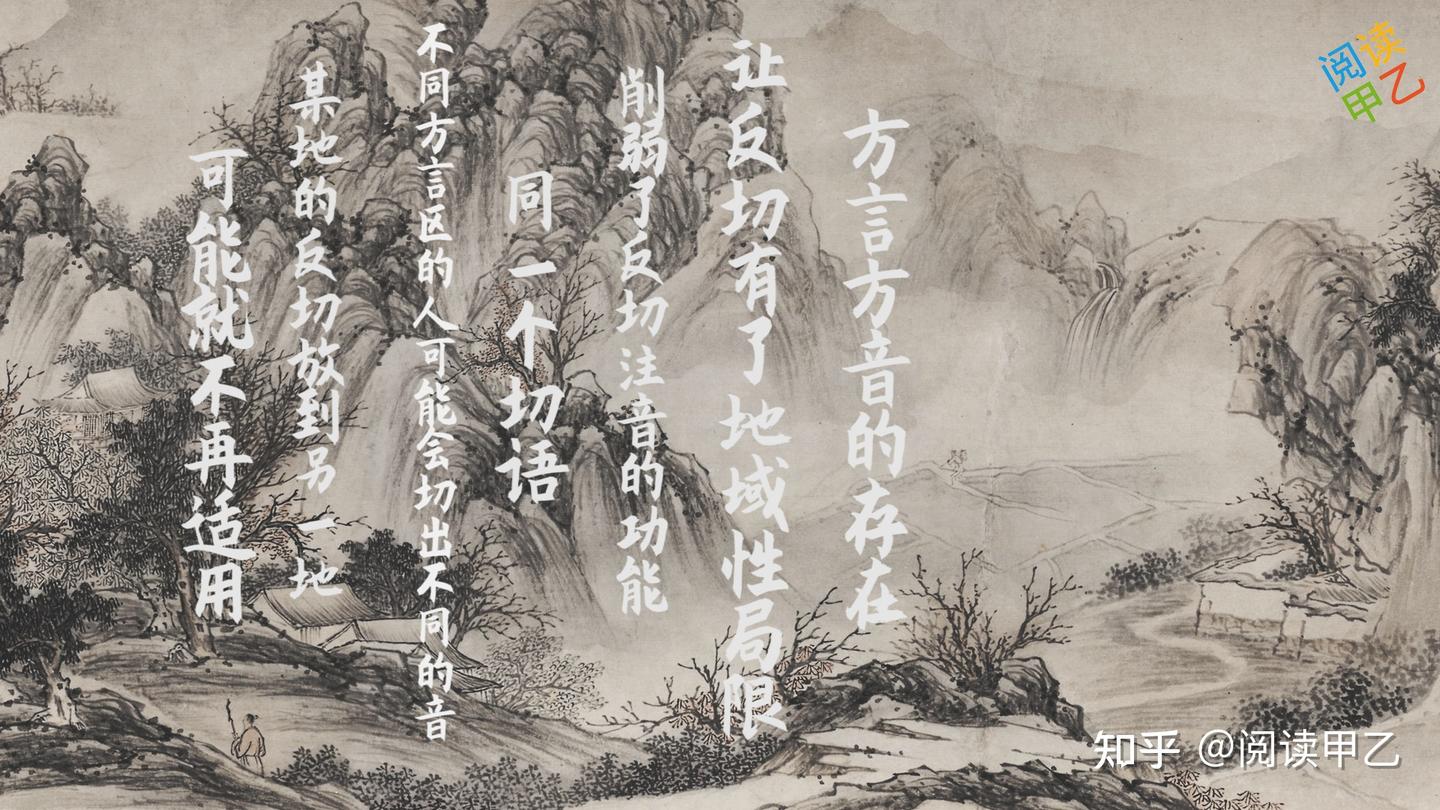 方言方音的存在
让反切有了地域性局限
削弱了反切注音的功能
同一个切语
不同方言区的人可能会切出不同的音
某地的反切放到另一地
可能就不再适用
阅读
甲乙
知乎 @阅读甲乙